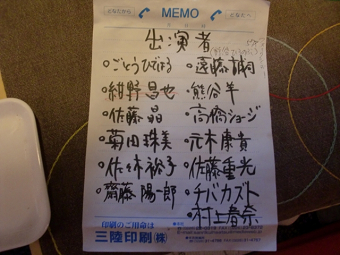 どなたから MEMO どなたへ
出演者
ごとうひでほる
遠藤誠同
紺野昌也
熊谷半
佐藤晶
高橋ジョージ
菊田珠美
元木康貴
佐々木裕子
佐藤重光
齋藤陽一郎
チバカズト
村上春奈
印刷のご用命は
三陸印刷(株)